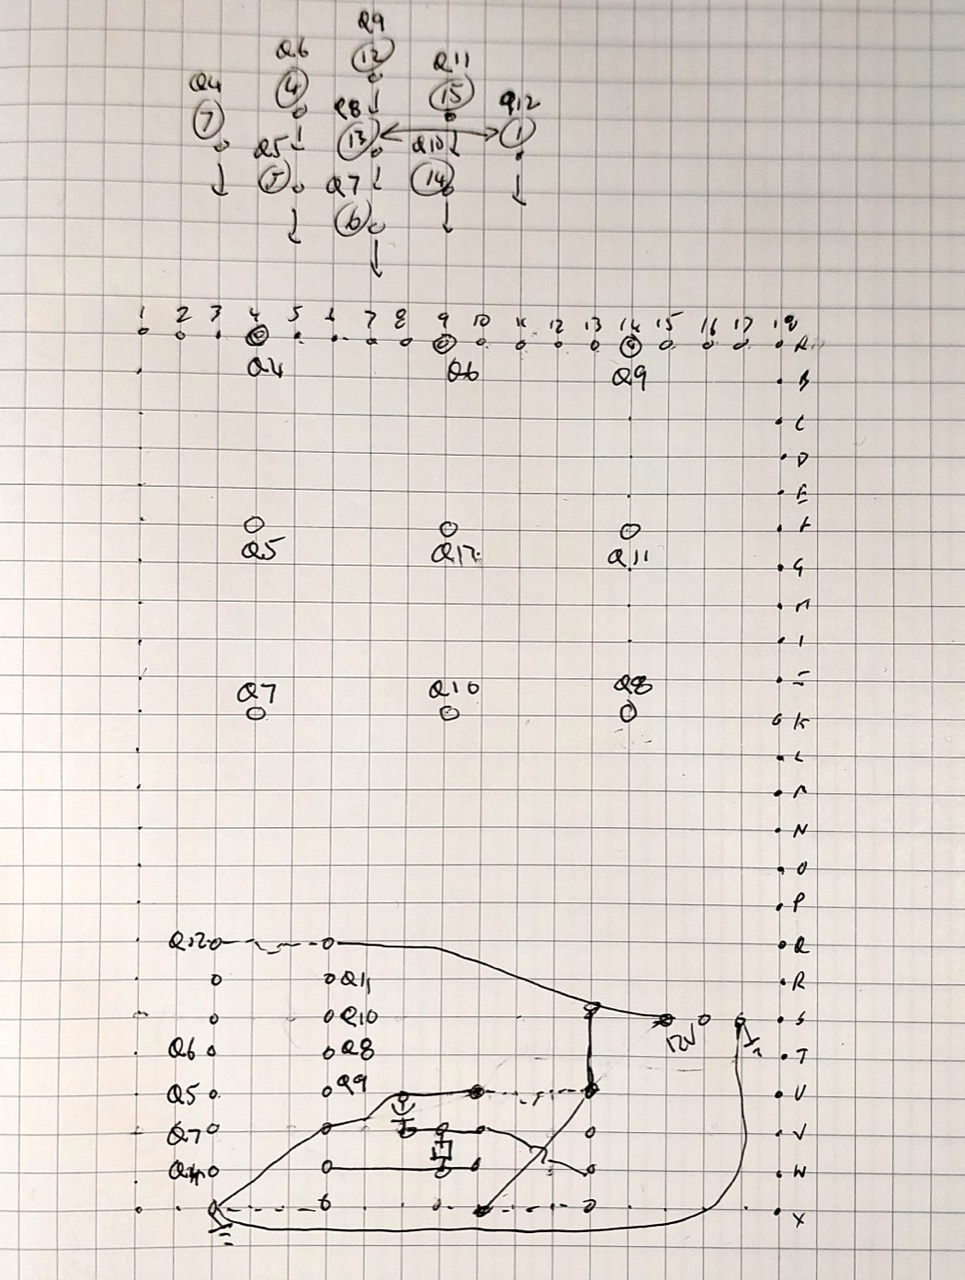 Q9
Q6 12 Q11
Q4 4 Q8 15 Q12
7 Q5 13 Q10 1
5 Q7 14
6
1 2 3 4 5 6 7 8 9 10 11 12 13 14 15 16 17 18
A
Q4 Q6 Q9
B
C
D
E
F
Q5 Q12 Q11
G
H
I
J
Q7 Q10 Q8
K
L
M
N
O
P
Q12 Q
Q11 R
Q10 S
12V
Q6 Q8 T
Q5 Q9 U
Q7 V
Q4 W
X